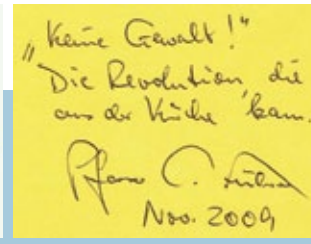 „Keine Gewalt!"
Die Revolution, die
aus der Kirche kam.
Pfarrer C. Führer
Nov. 2009